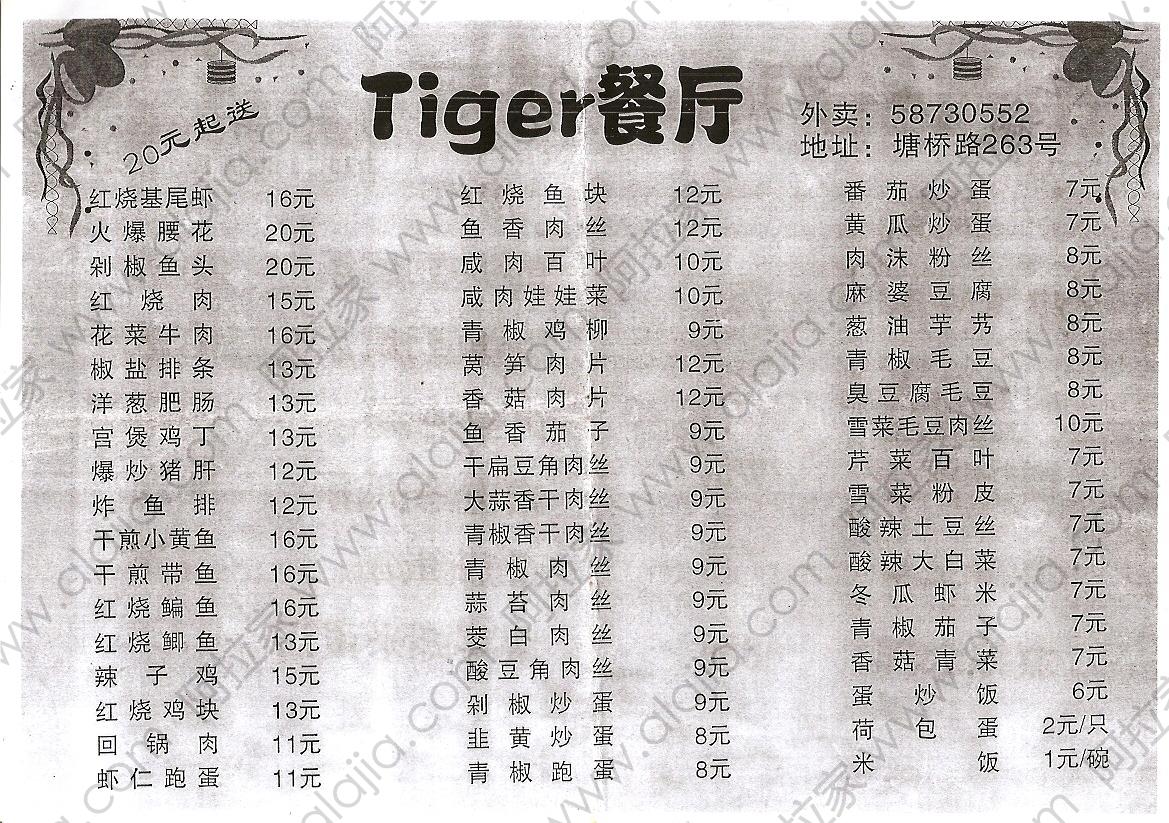 Tiger餐厅
20元起送
外卖：58730552
地址：塘桥路263号
红烧基尾虾 16元
火爆腰花 20元
剁椒鱼头 20元
红烧肉 15元
花菜牛肉 16元
椒盐排条 13元
洋葱肥肠 13元
宫煲鸡丁 13元
爆炒猪肝 12元
炸鱼排 12元
干煎小黄鱼 16元
干煎带鱼 16元
红烧鳊鱼 16元
红烧鲫鱼 13元
辣子鸡 15元
红烧鸡块 13元
回锅肉 11元
虾仁跑蛋 11元
红烧鱼块 12元
鱼香肉丝 12元
咸肉百叶 10元
咸肉娃娃菜 10元
青椒鸡柳 9元
莴笋肉片 12元
香菇肉片 12元
鱼香茄子 9元
干扁豆角肉丝 9元
大蒜香干肉丝 9元
青椒香干肉丝 9元
青椒肉丝 9元
蒜苔肉丝 9元
茭白肉丝 9元
酸豆角肉丝 9元
剁椒炒蛋 9元
韭黄炒蛋 8元
青椒跑蛋 8元
番茄炒蛋 7元
黄瓜炒蛋 7元
肉沫粉丝 8元
麻婆豆腐 8元
葱油芋艿 8元
青椒毛豆 8元
臭豆腐毛豆 8元
雪菜毛豆肉丝 10元
芹菜百叶 7元
雪菜粉皮 7元
酸辣土豆丝 7元
酸辣大白菜 7元
冬瓜虾米 7元
青椒茄子 7元
香菇青菜 7元
蛋炒饭 6元
荷包蛋 2元/只
米饭 1元/碗
阿拉家 www.alajia.com